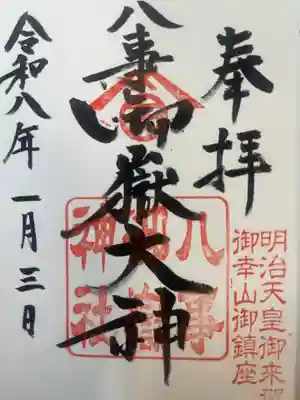 奉拝
明治天皇御来
御幸山御鎮座
八事御嶽大神
八事
御嶽
神社
令和八年一月三日